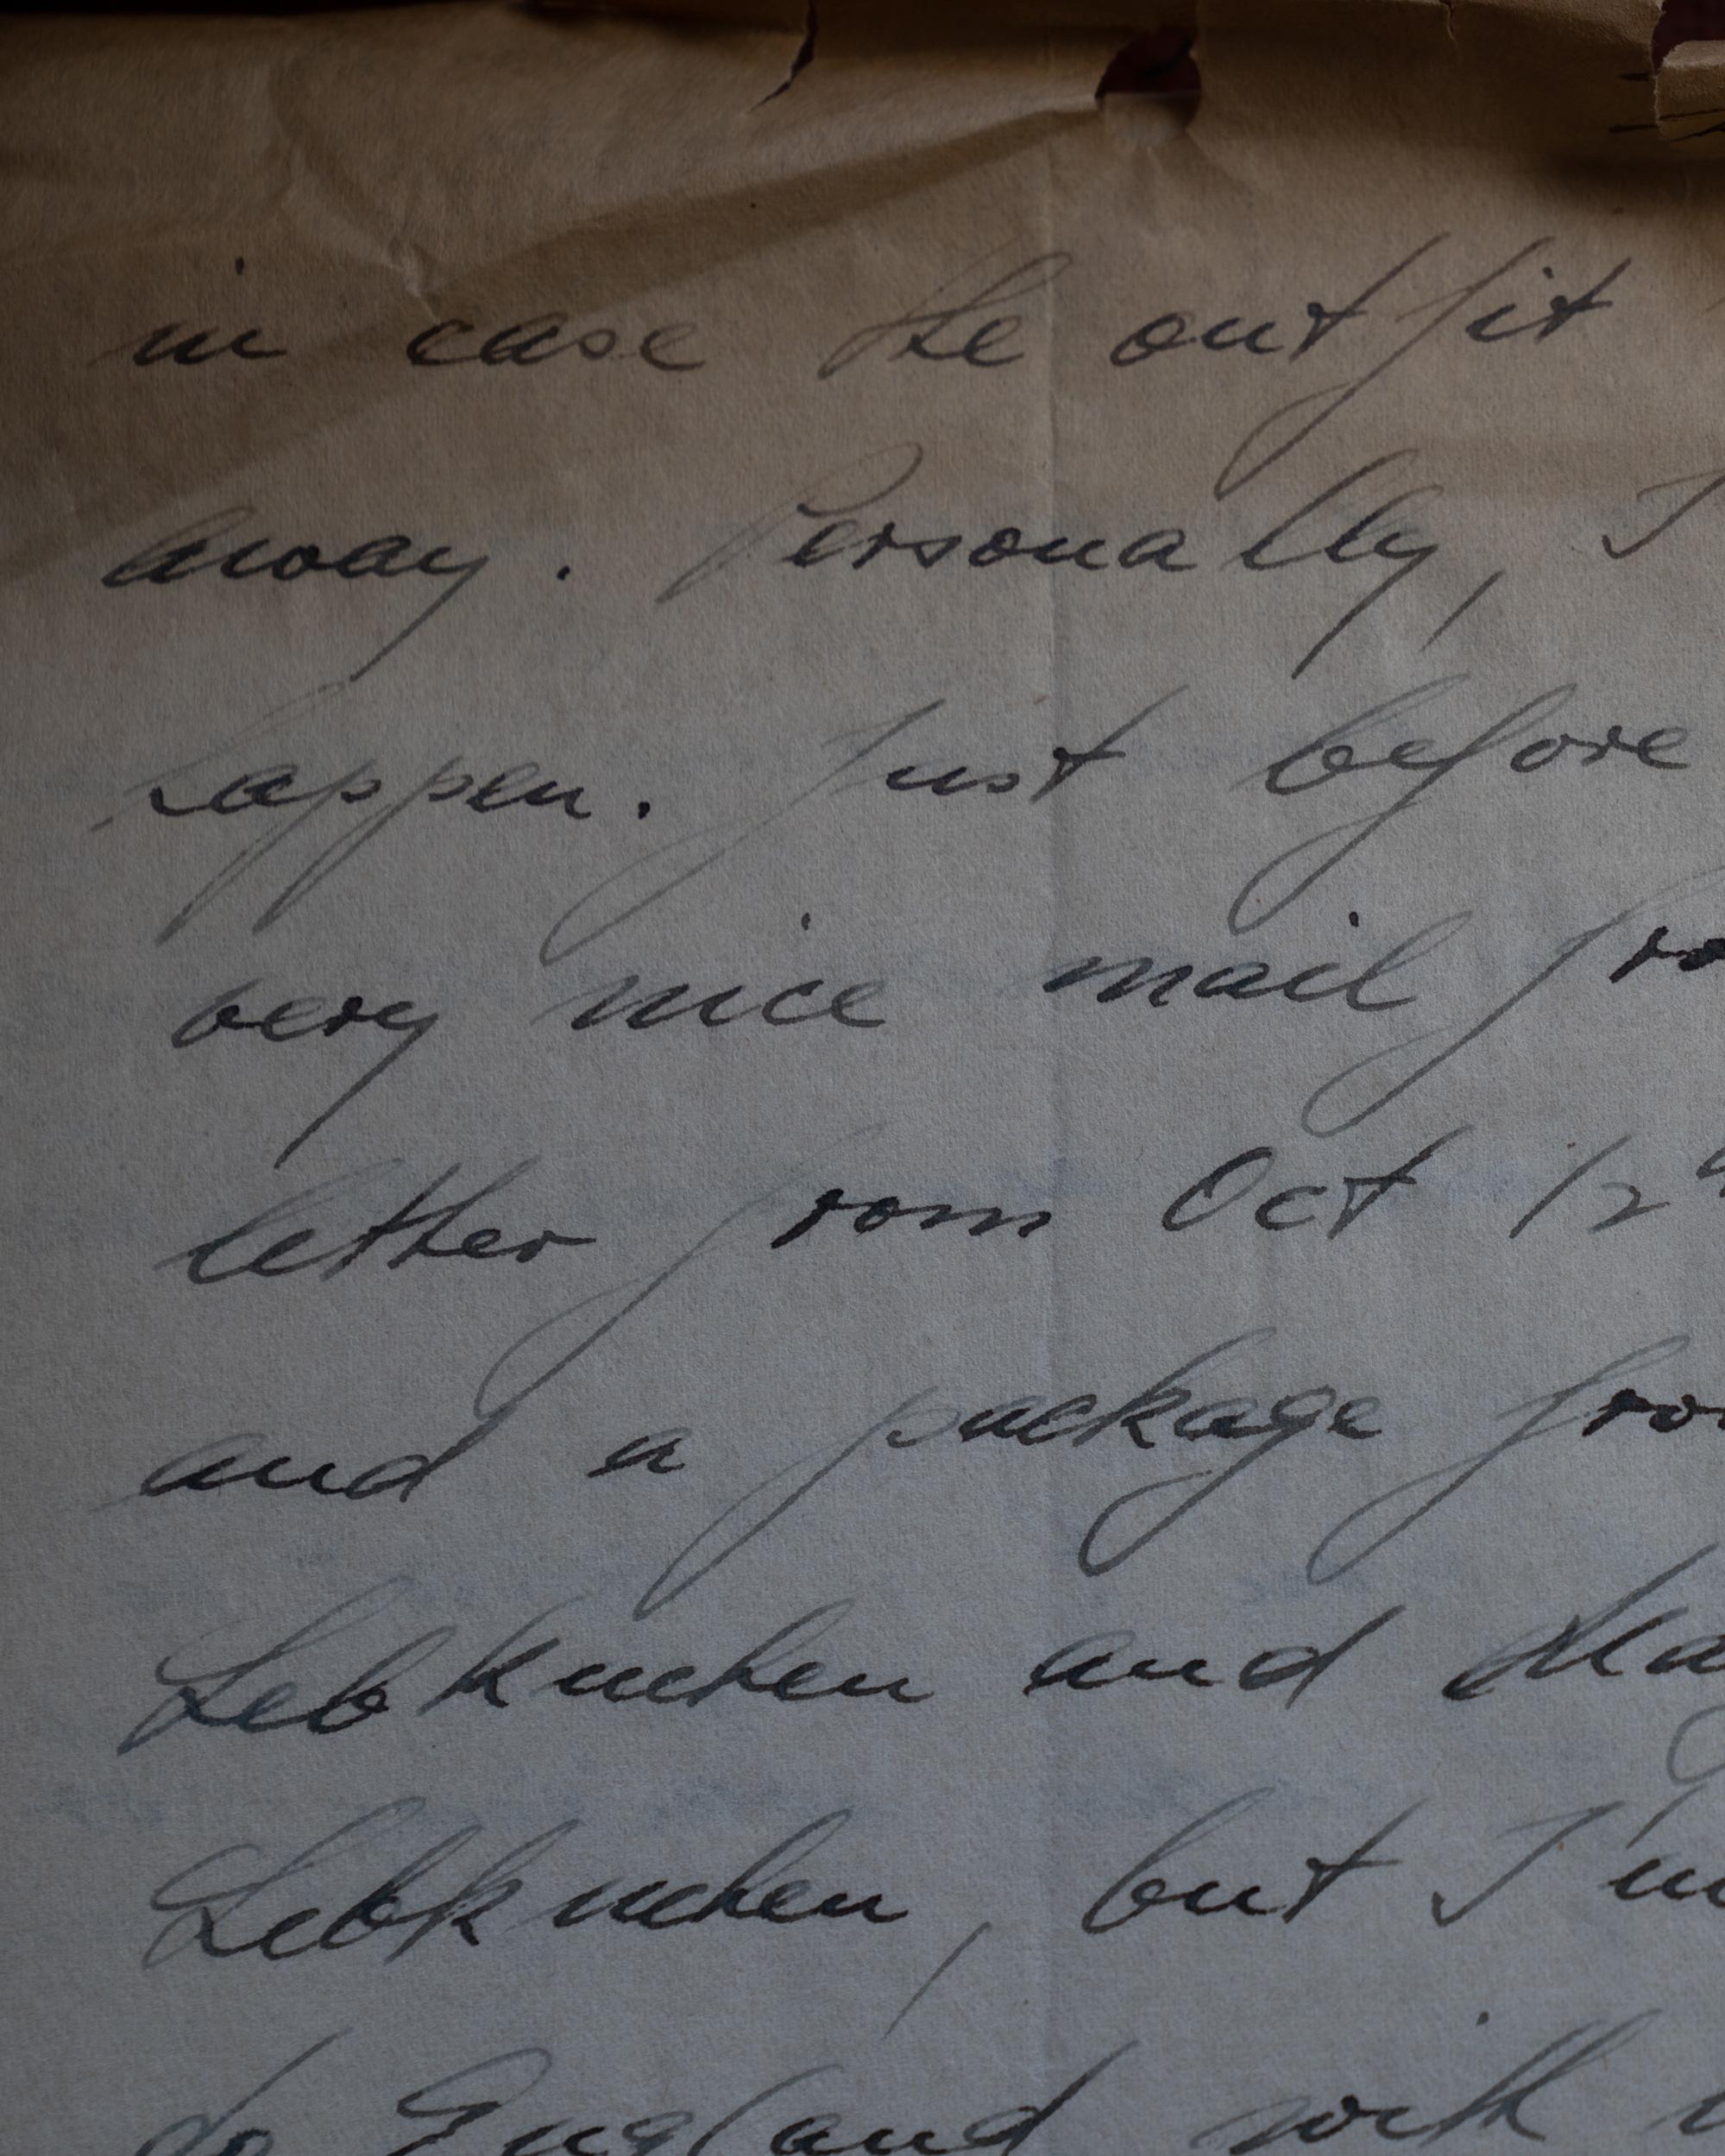 in case the outfit
away. Personally, I
happen. Just before
very nice mail fro
letter from Oct 12
and a package fro
Lebkuchen and
Lebkuchen, but I
do England with